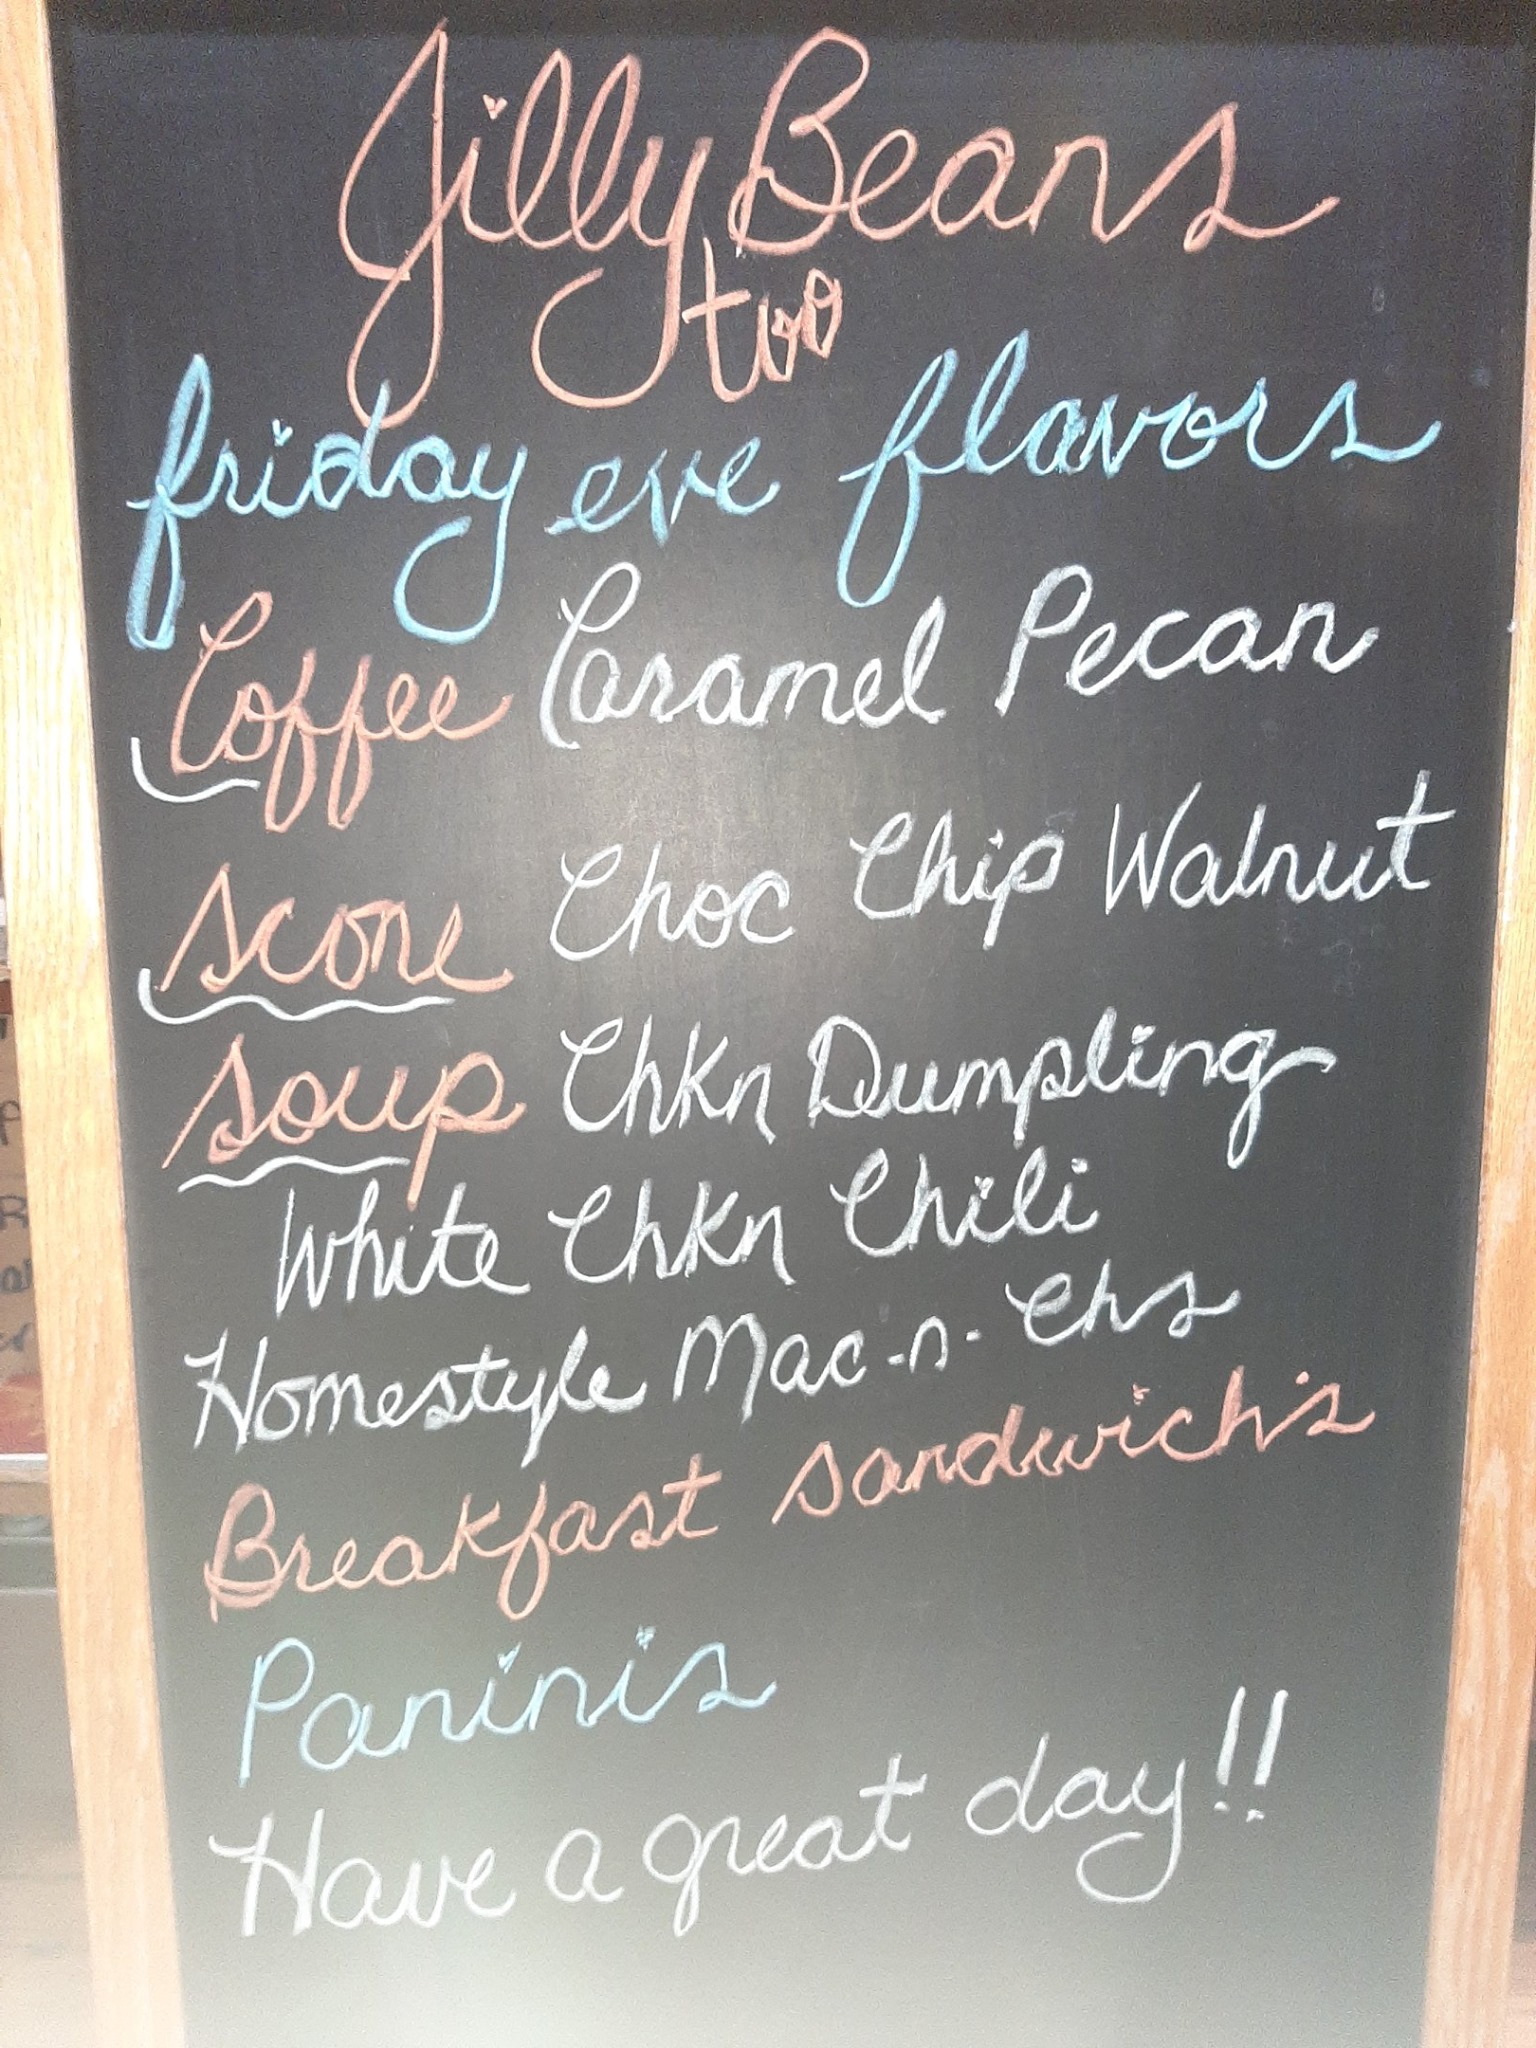 Jilly Beans
too
friday eve flavors
Coffee Caramel Pecan
scone Choc Chip Walnut
soup Chkn Dumpling
White Chkn Chili
Homestyle Mac-n-Chs
Breakfast sandwich's
Paninis
Have a great day!!